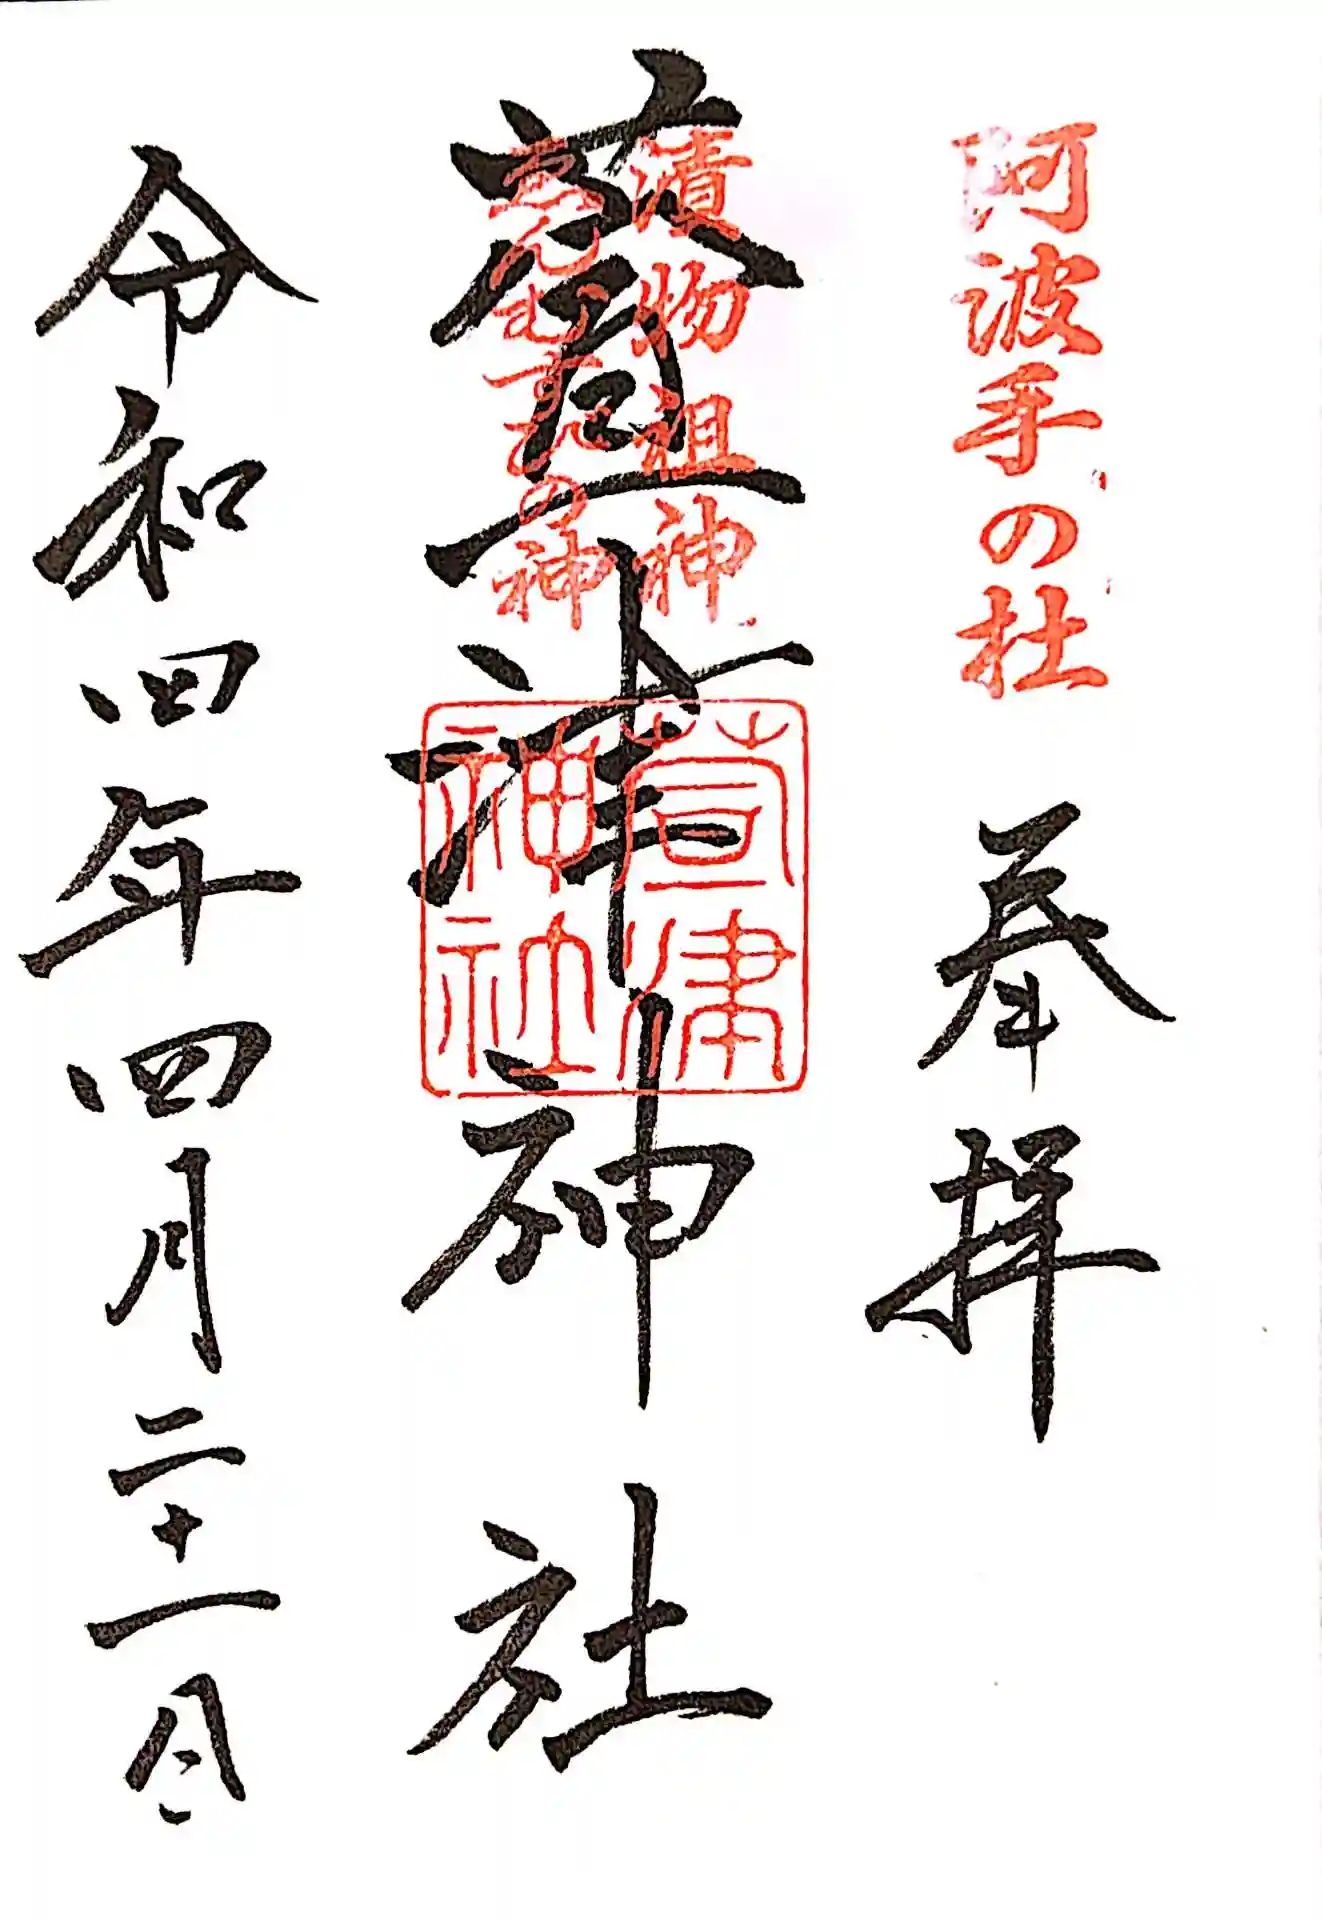 阿波手の杜
奉拝
漬物祖神
えんむすびの神
萱津神社
萱津
神社
令和四年四月二十一日